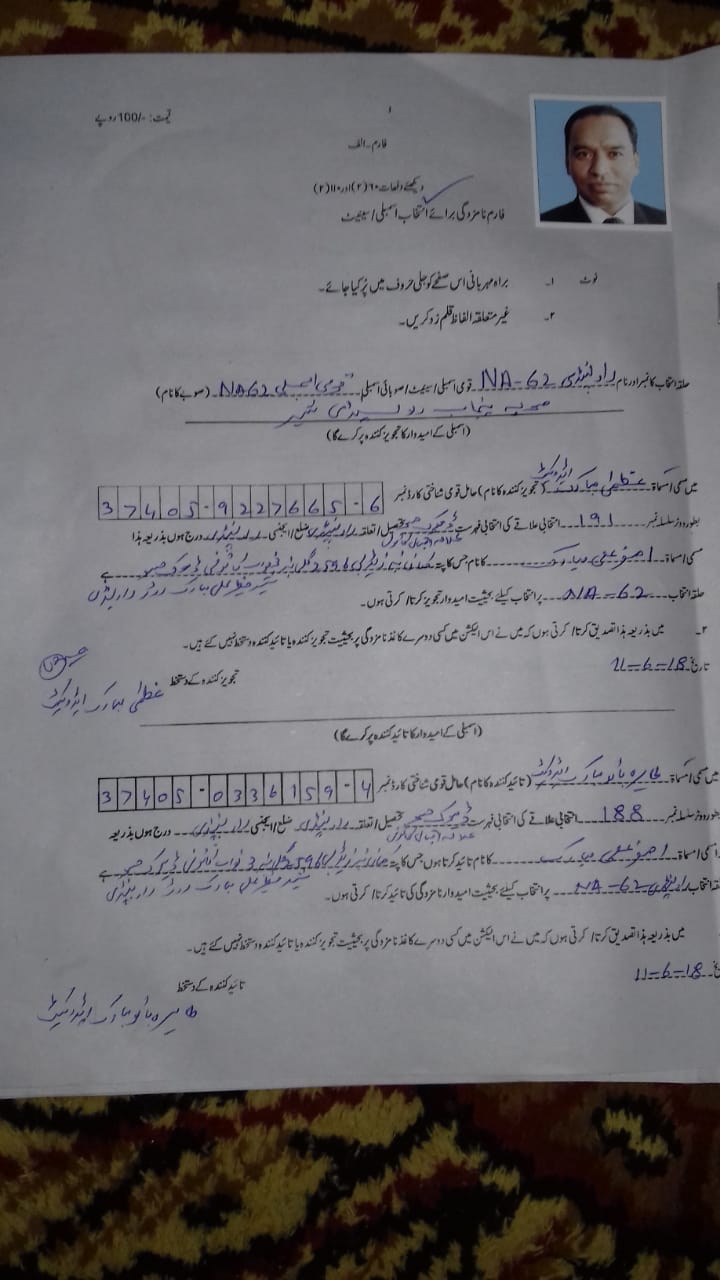 قیمت: -/100 روپے
۱
فارم۔الف
دیکھئے دفعات ۶۰(۲) اور ۱۱۰(۲)
فارم نامزدگی برائے انتخاب اسمبلی/سینیٹ
نوٹ ۱۔ براہ مہربانی اس صفحے کو جلی حروف میں پُر کیا جائے۔
۲۔ غیر متعلقہ الفاظ قلم زد کریں۔
حلقہ انتخاب کا نمبر اور نام راولپنڈی NA-62 قومی اسمبلی/سینیٹ/صوبائی اسمبلی قومی اسمبلی NA62 (صوبے کا نام)
صوبہ پنجاب
(اسمبلی کے امیدوار کا تجویز کنندہ پر کرے گا)
میں مسمی/مسماۃ عظمیٰ مبارک ایڈووکیٹ (تجویز کنندہ کا نام) حامل قومی شناختی کارڈ نمبر 37405-9227665-6
بطور ووٹر سلسلہ نمبر 191 انتخابی علاقے کی انتخابی فہرست ڈھوک تحصیل/تعلقہ راولپنڈی ضلع/ایجنسی راولپنڈی درج ہوں بذریعہ ہذا
علامہ اقبال کالونی
مسمی/مسماۃ اصغر علی مبارک کا نام جس کا پتہ ہے
حلقہ انتخاب NA-62 پر انتخاب کیلئے بحیثیت امیدوار تجویز کرتا/کرتی ہوں۔
۲۔ میں بذریعہ ہذا تصدیق کرتا/کرتی ہوں کہ میں نے اس الیکشن میں کسی دوسرے کاغذ نامزدگی پر بحیثیت تجویز کنندہ یا تائید کنندہ دستخط نہیں کئے ہیں۔
تاریخ 11-6-18
تجویز کنندہ کے دستخط عظمیٰ مبارک ایڈووکیٹ
(اسمبلی کے امیدوار کا تائید کنندہ پر کرے گا)
میں مسمی/مسماۃ طاہرہ بانو مبارک ایڈووکیٹ (تائید کنندہ کا نام) حامل قومی شناختی کارڈ نمبر 37405-0336159-4
بطور ووٹر سلسلہ نمبر 188 انتخابی علاقے کی انتخابی فہرست ڈھوک تحصیل/تعلقہ راولپنڈی ضلع/ایجنسی راولپنڈی درج ہوں بذریعہ
علامہ اقبال کالونی
مسمی/مسماۃ اصغر علی مبارک کا نام تائید کرتا ہوں جس کا پتہ ہے
انتخاب راولپنڈی NA-62 پر انتخاب کیلئے بحیثیت امیدوار نامزدگی کی تائید کرتا/کرتی ہوں۔
میں بذریعہ ہذا تصدیق کرتا/کرتی ہوں کہ میں نے اس الیکشن میں کسی دوسرے کاغذ نامزدگی پر بحیثیت تجویز کنندہ یا تائید کنندہ دستخط نہیں کئے ہیں۔
11-6-18
تائید کنندہ کے دستخط
طاہرہ بانو مبارک ایڈووکیٹ